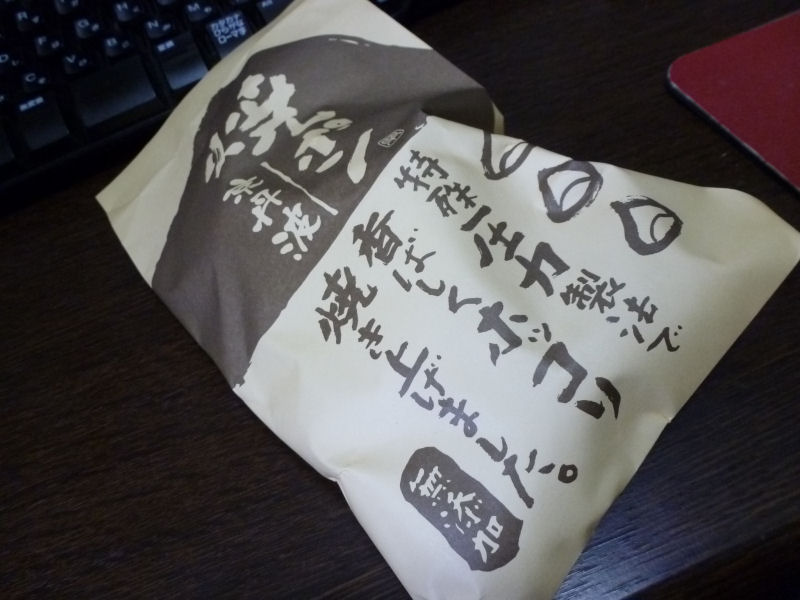 焼ポン
京丹波
特殊圧力製法で
香ばしくホッコリ
焼き上げました。
無添加